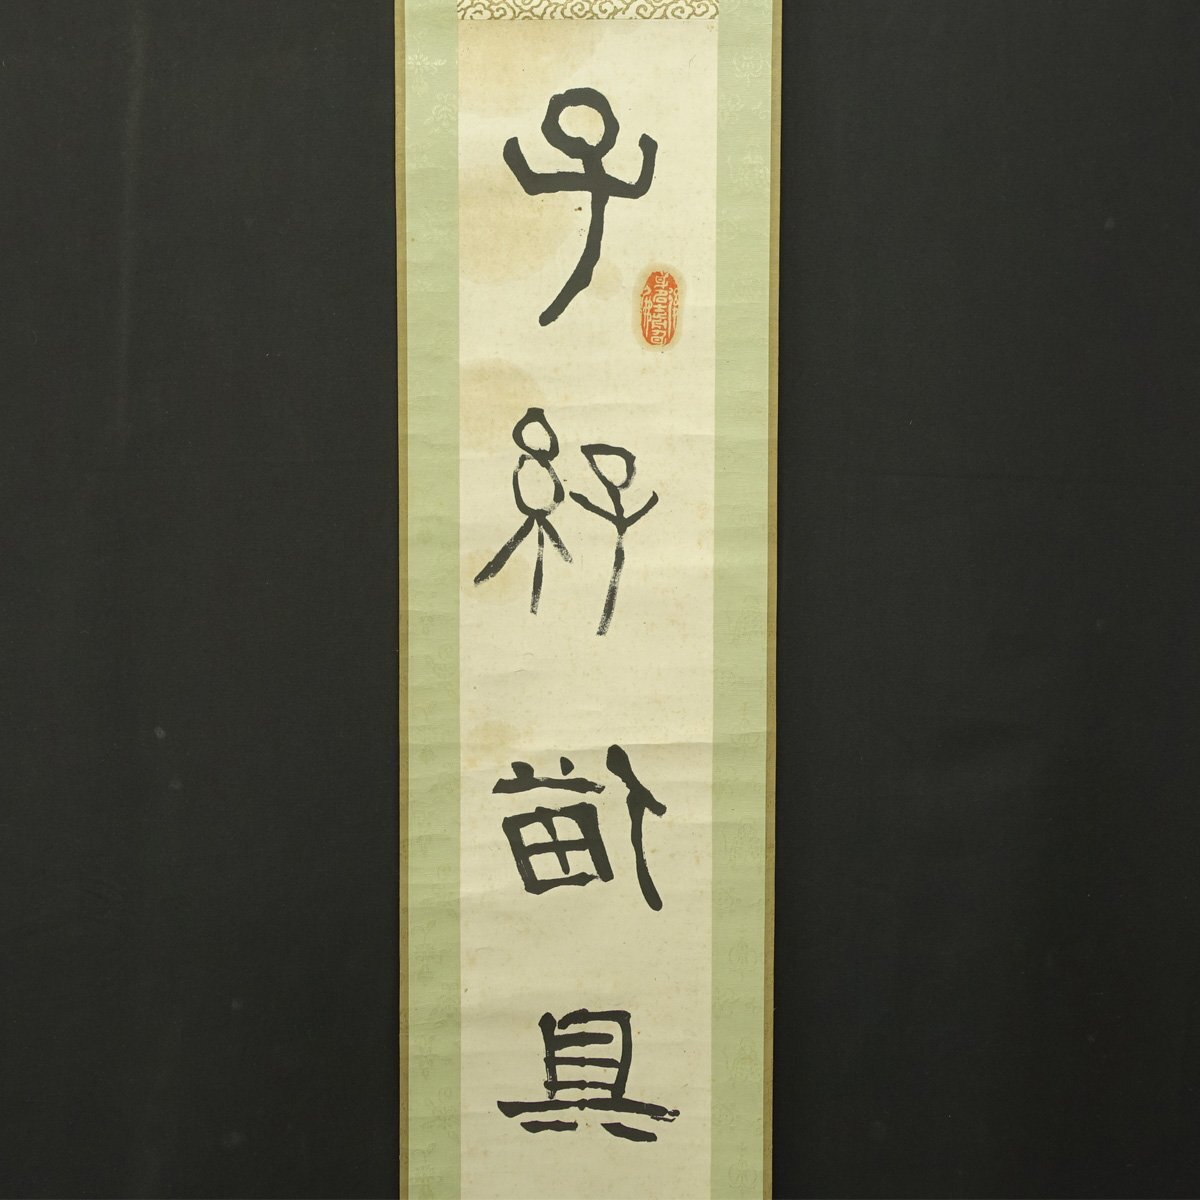 子孫備具